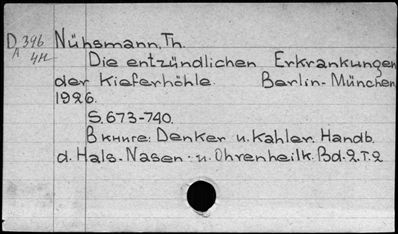 D 396 Nühsmann, Th.
A 4H Die entzündlichen Erkrankungen
der Kieferhöhle. Berlin-München
1926.
S. 673-740.
В книге: Denker u. Kahler. Handb.
d. Hals-Nasen- u. Ohrenheilk. Bd. 2. T. 2